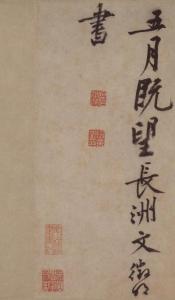 五月既望長洲文徵明
書